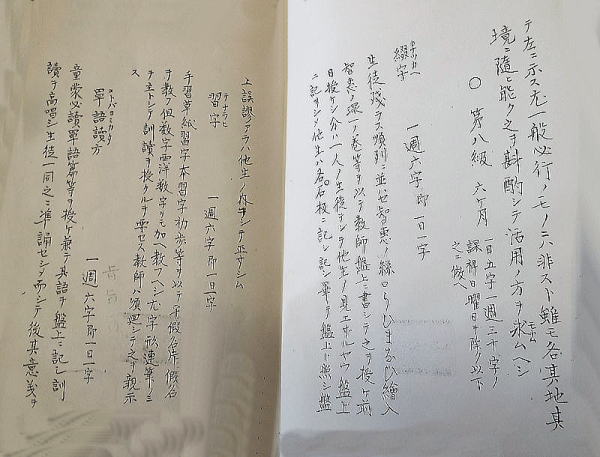 テ左ニ示ス尤一般必行ノモノニハ非スト雖モ各其地其
境ニ随ヒ能ク之ヲ斟酌シテ活用ノ方ヲ求ムヘシ
モトム
○ 第八級 六ケ月
一日五字一週三十字ノ
課程日曜日ヲ除ク以下
之ニ倣ヘ
綴字 一週六字即一日一字
生徒残ラス順列ニ並ハセ智恵ノ絲口うひまなひ繪入
智恵ノ環一ノ巻等ヲ以テ教師盤上ニ書シテ之ヲ授ケ前
日授ケシ分ハ一人ノ生徒ヲシテ他生ノ見エサルヤウ盤上
ニ記サシメ他生ハ各石板ニ記シ記シ畢テ盤上ト照シ盤
上誤謬アラハ他生ノ内ヲシテ正サシム
テナラヒ
習字 一週六字即一日一字
手習草紙習字本習字初歩等ヲ以テ平假名片假名
ヲ教フ但数字西洋数字ヲモ加ヘ教フヘシ尤字形運筆ノミ
ヲ主トシテ訓讀ヲ授クルヲ要セス教師ハ順廻シテ之ヲ親示
ス
單語讀方 一週六字即一日一字
童蒙必讀單語篇等ヲ授ケ兼テ其語ヲ盤上ニ記シ訓
讀ヲ高唱シ生徒一同之ニ準誦セシメ而シテ後其意義ヲ